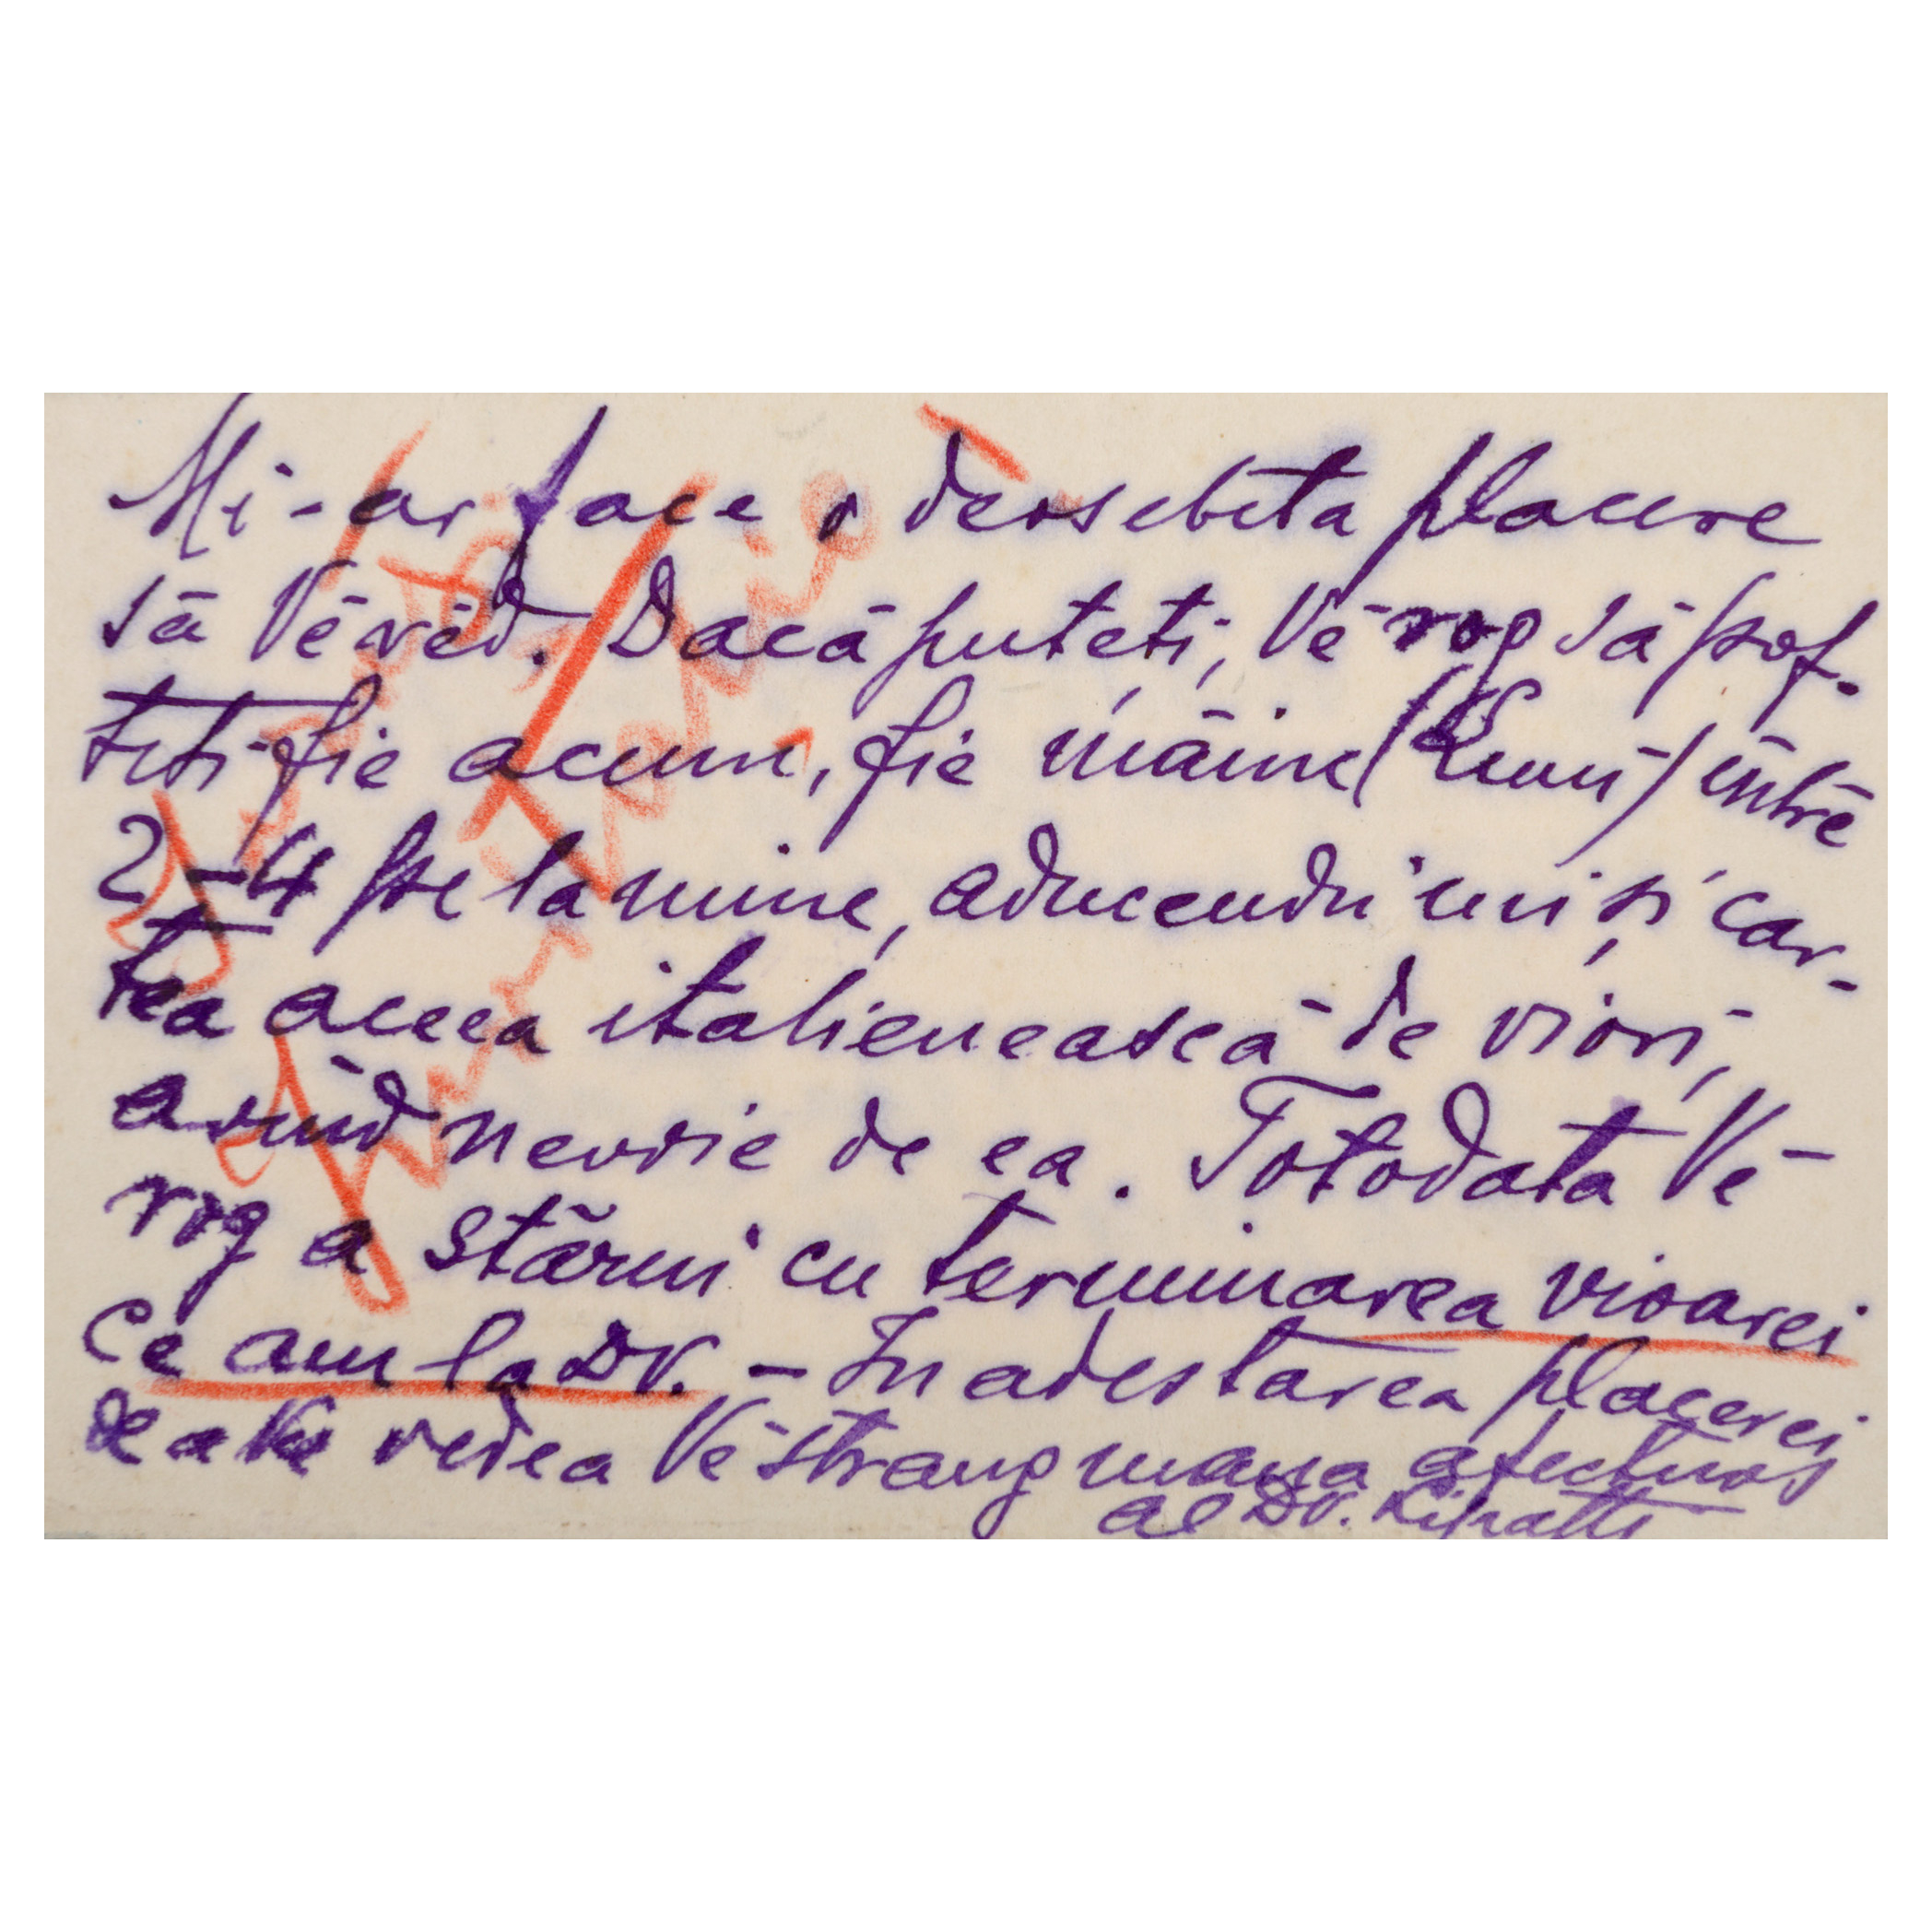 Mi-ar face o deosebita placere
să Vē vēd. Dacă puteți, Vē rog să pof-
titi fie acum, fie mâine (Luni) între
2-4 pe la mine, aducendu'mi și car-
tea aceea italienească de viori,
avînd nevoie de ea. Totodata Vē
rog a stărui cu terminarea vioarei
Ce am la Dv. - In adestarea placerei
de a Ve vedea Vē strang mana afectuos
al Dv. Lipatti